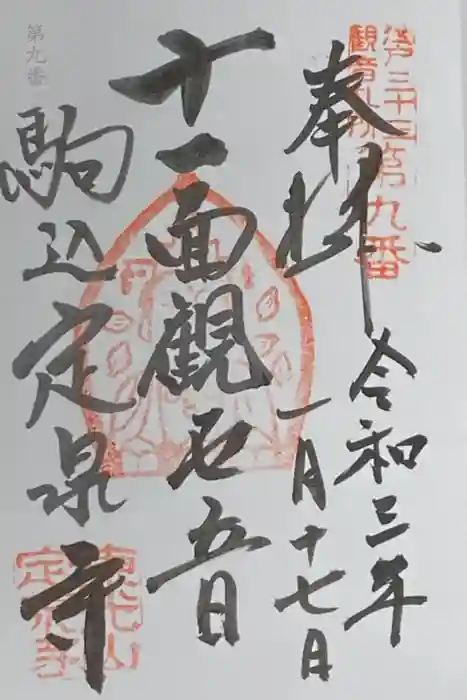 江戸三十三
観音札所
第九番
奉拝
令和三年
一月十七日
十一面観世音
駒込定泉寺
第九番
定泉寺